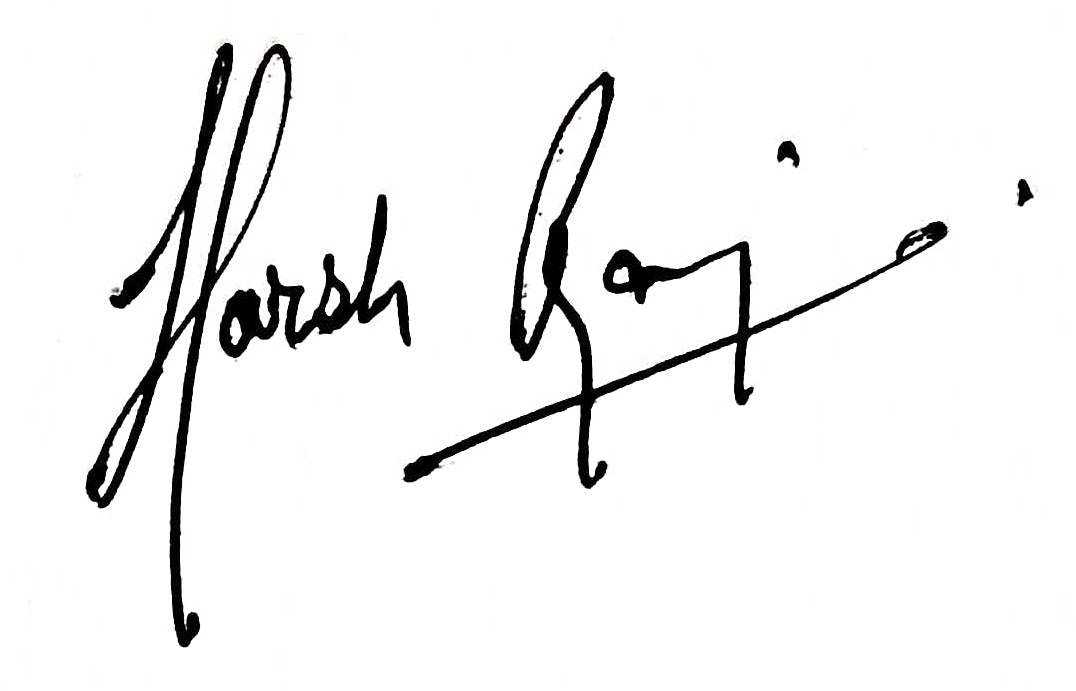 Harsh Raj